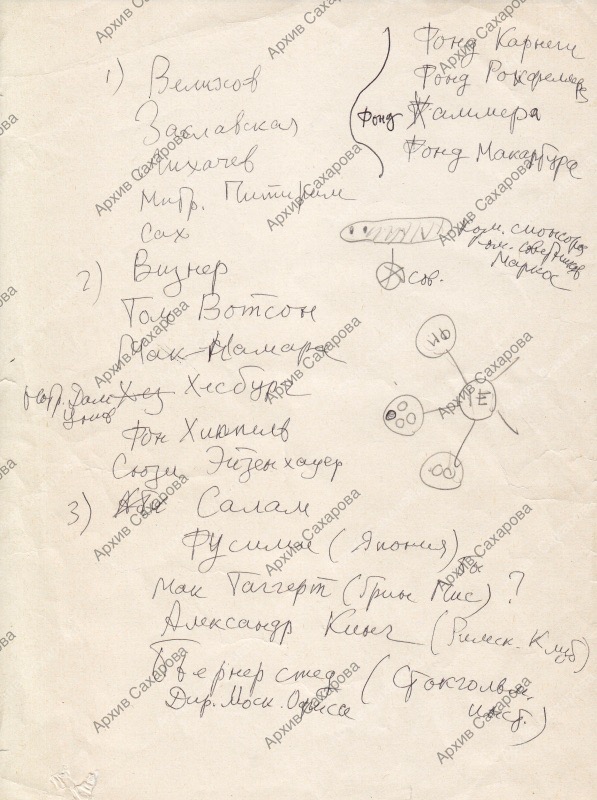 1) Велихов
Заславская
Лихачев
Митр. Питирим
Сах
Фонд Карнеги
Фонд Рокфеллера
Фонд Хаммера
Фонд Макартура
сов.
2) Визнер
Том Вотсон
Мак-Намара
Хесбург
Фон Хиппель
Сюзи Эйзенхауер
3) Салам
Фусима (Япония)
Мак Таггерт (Грин Пис) ?
Александр Кинг (Римск. Клуб)
Бьернерстед (Стокгольм. инст.)
Дир. Моск. Офиса
Архив Сахарова